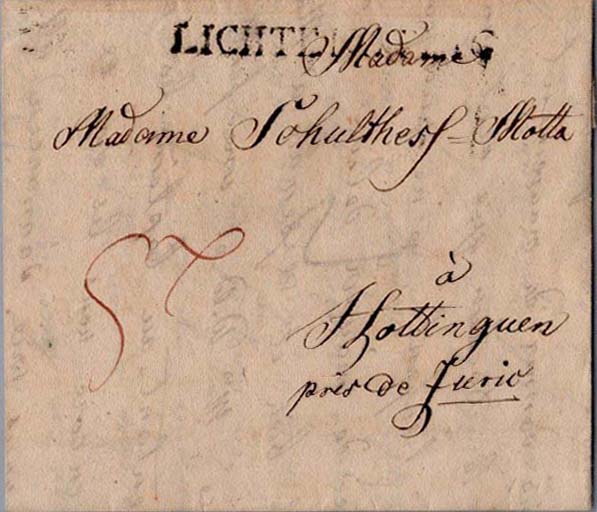 LICHTENSTEIG
Madame
Madame Schulthess=Motta
à
Hottinguen
près de Zuric